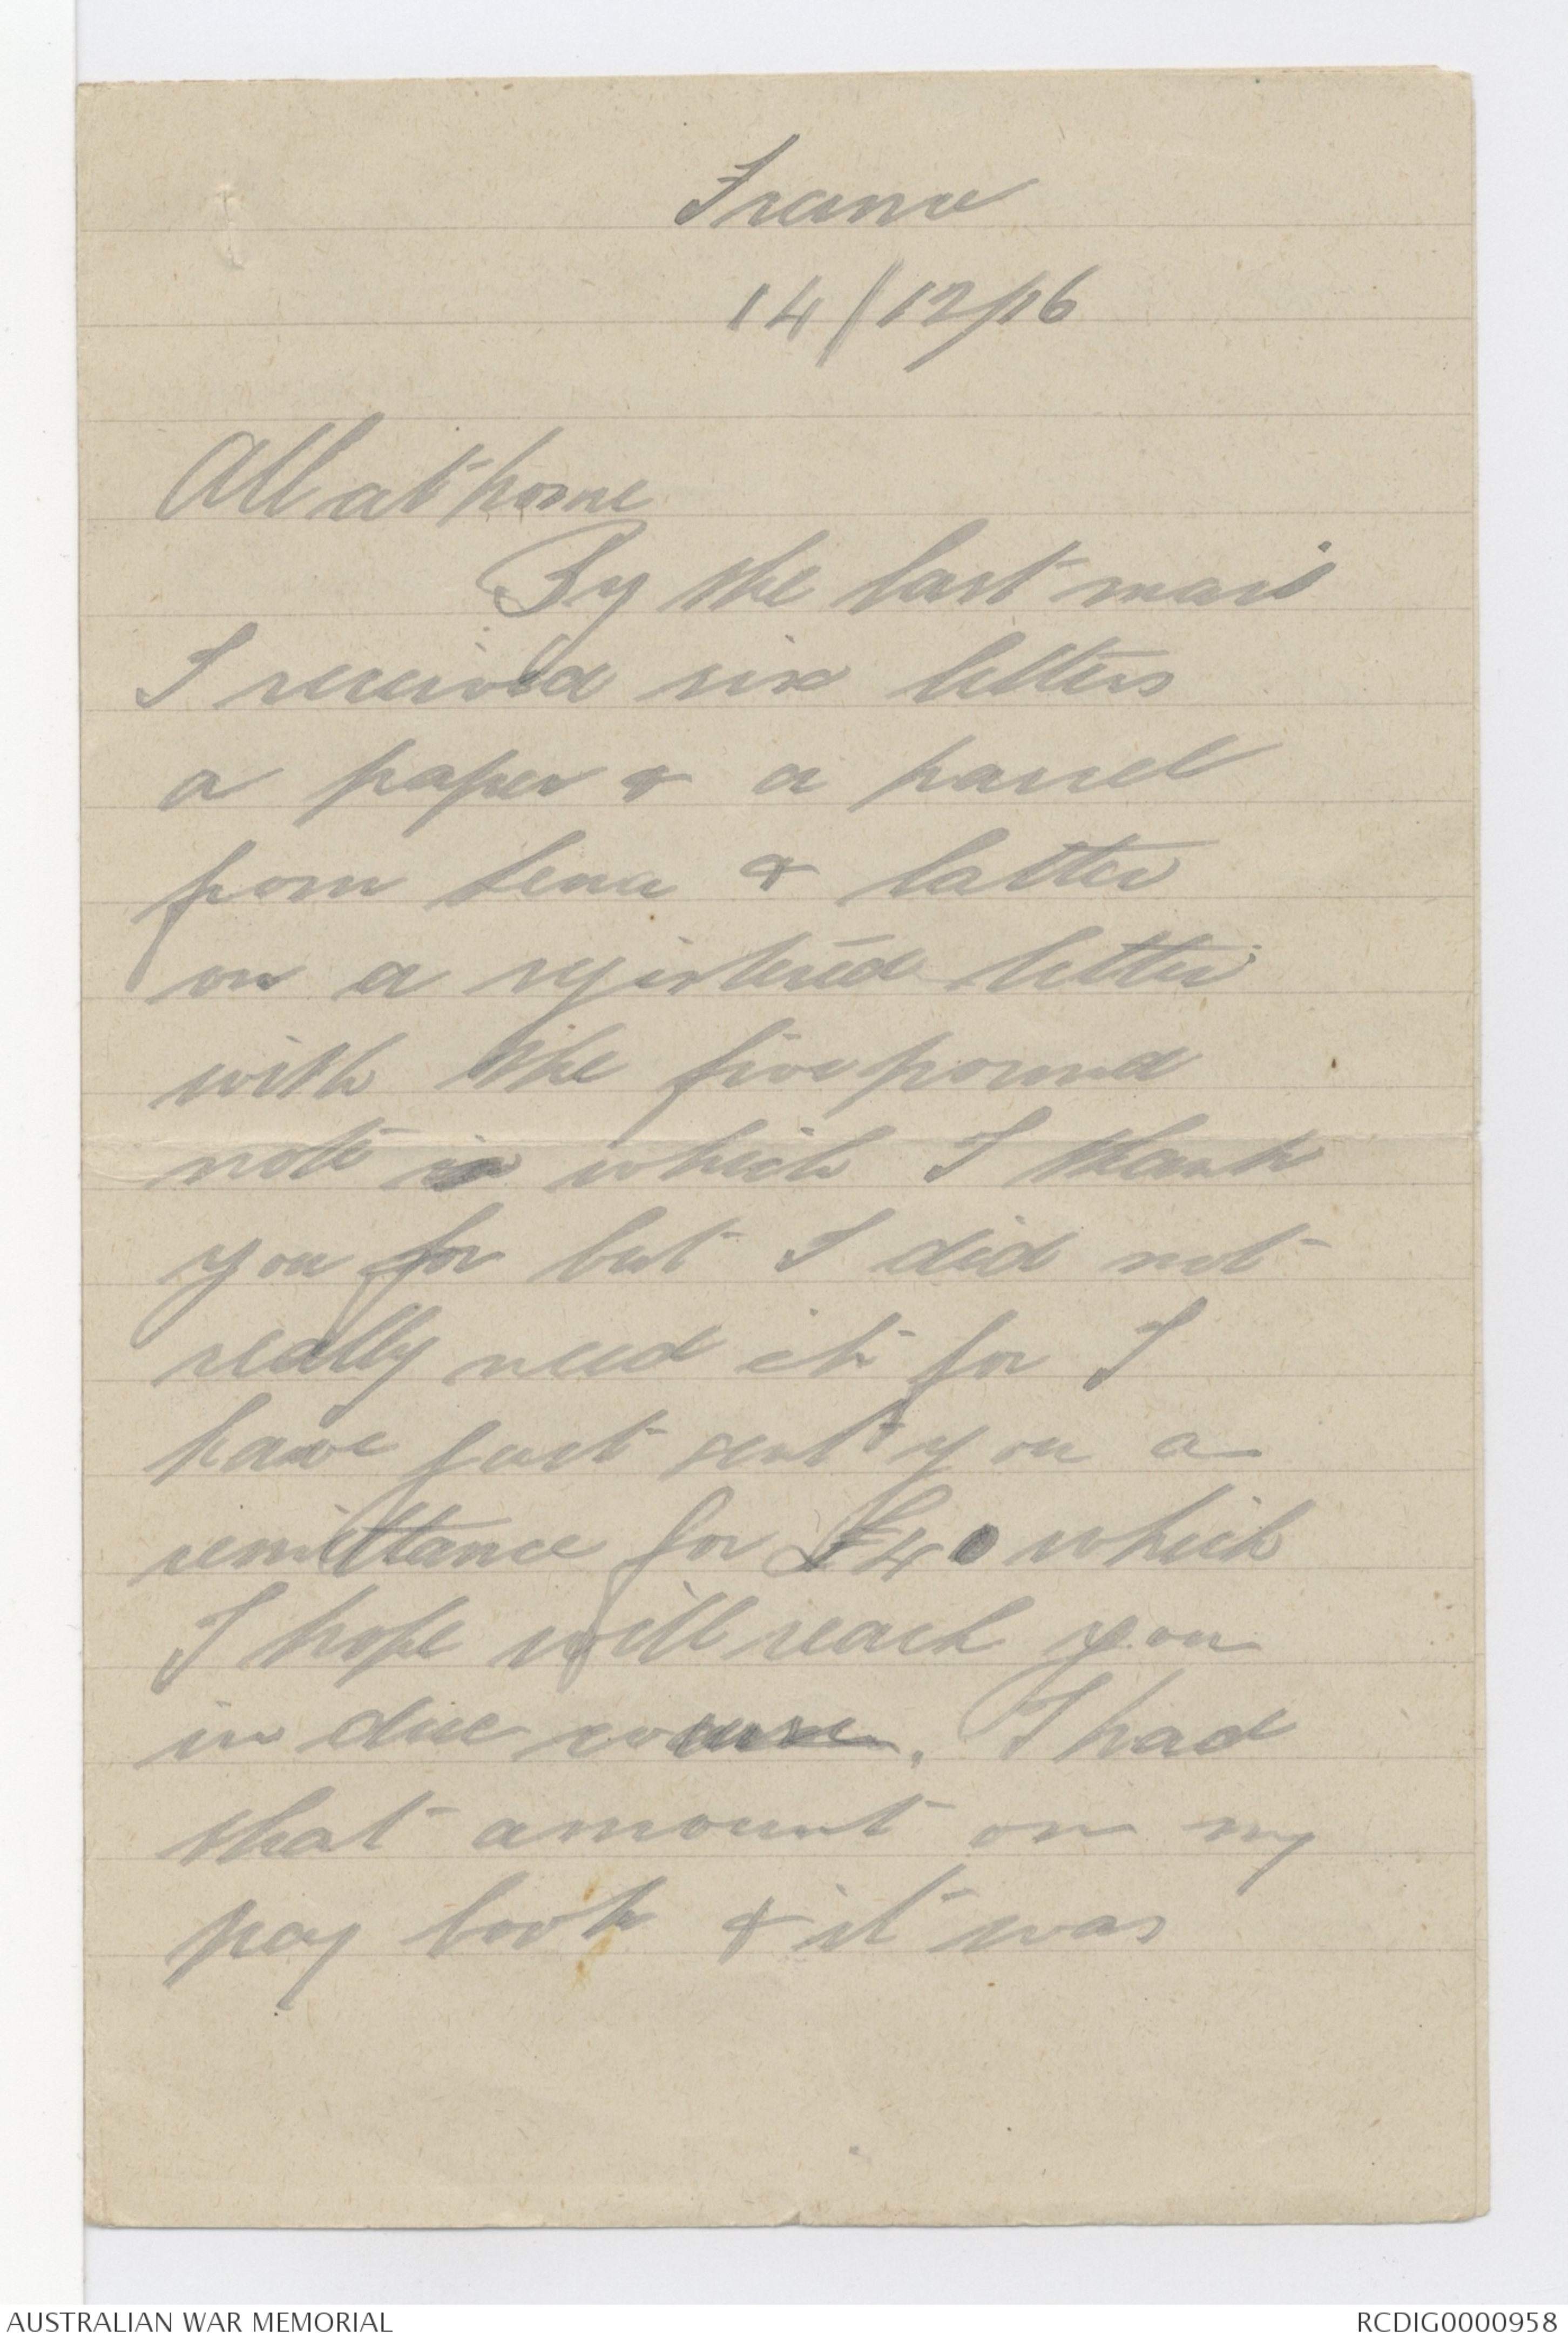 France
14/12/16
All at home
By the last mail
I received six letters
a paper & a parcel
from Lena & latter
on a registered letter
with the five pound
note which I thank
you for but I did not
really need it for I
have just sent you a
remittance for £40 which
I hope will reach you
in due course. I had
that amount on my
pay book & it was
AUSTRALIAN WAR MEMORIAL
RCDIG0000958